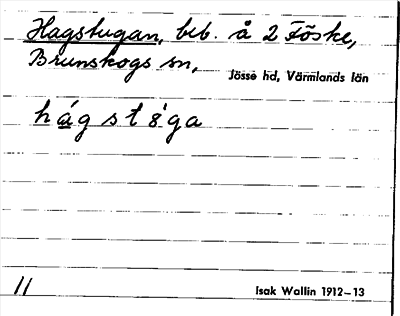 Hagstugan, beb. å 2 Föske,
Brunskogs sn,
Jösse hd, Värmlands län
hág st8̀ga
11
Isak Wallin 1912–13